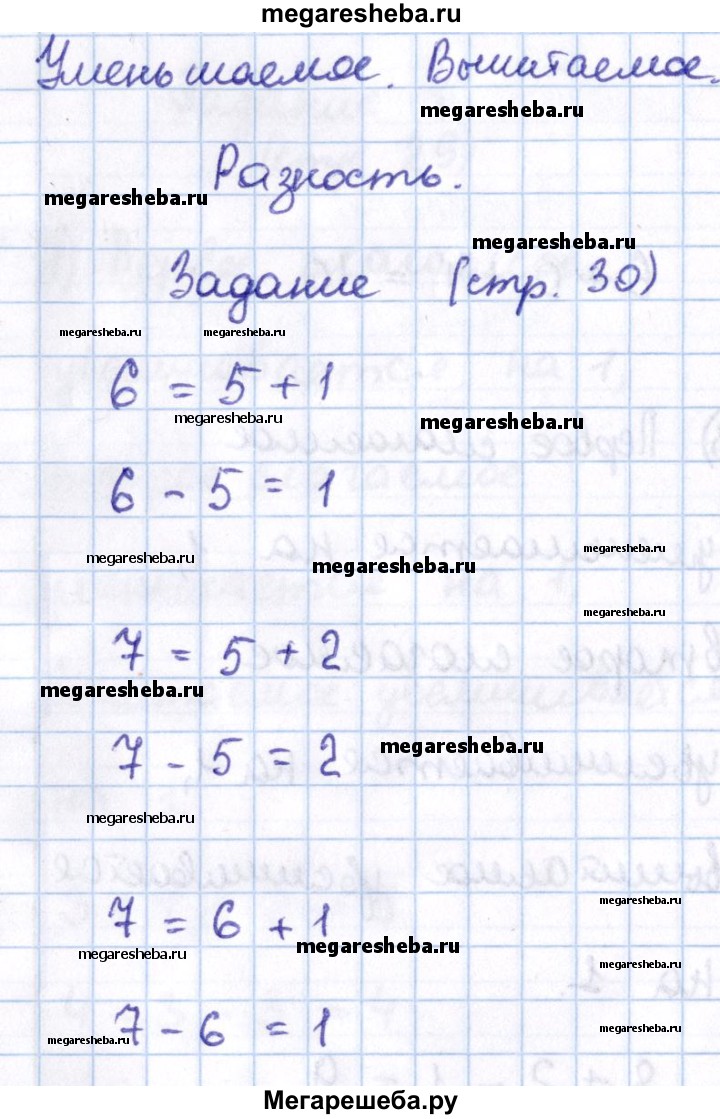 megaresheba.ru
Уменьшаемое. Вычитаемое.
megaresheba.ru
Разность.
megaresheba.ru
megaresheba.ru
Задание (стр. 30)
megaresheba.ru megaresheba.ru
6 = 5 + 1
megaresheba.ru megaresheba.ru
6 - 5 = 1
megaresheba.ru megaresheba.ru megaresheba.ru
megaresheba.ru
7 = 5 + 2
megaresheba.ru
7 - 5 = 2
megaresheba.ru
megaresheba.ru
megaresheba.ru
7 = 6 + 1
megaresheba.ru megaresheba.ru
megaresheba.ru
7 - 6 = 1
megaresheba.ru megaresheba.ru
Мегарешеба.ру